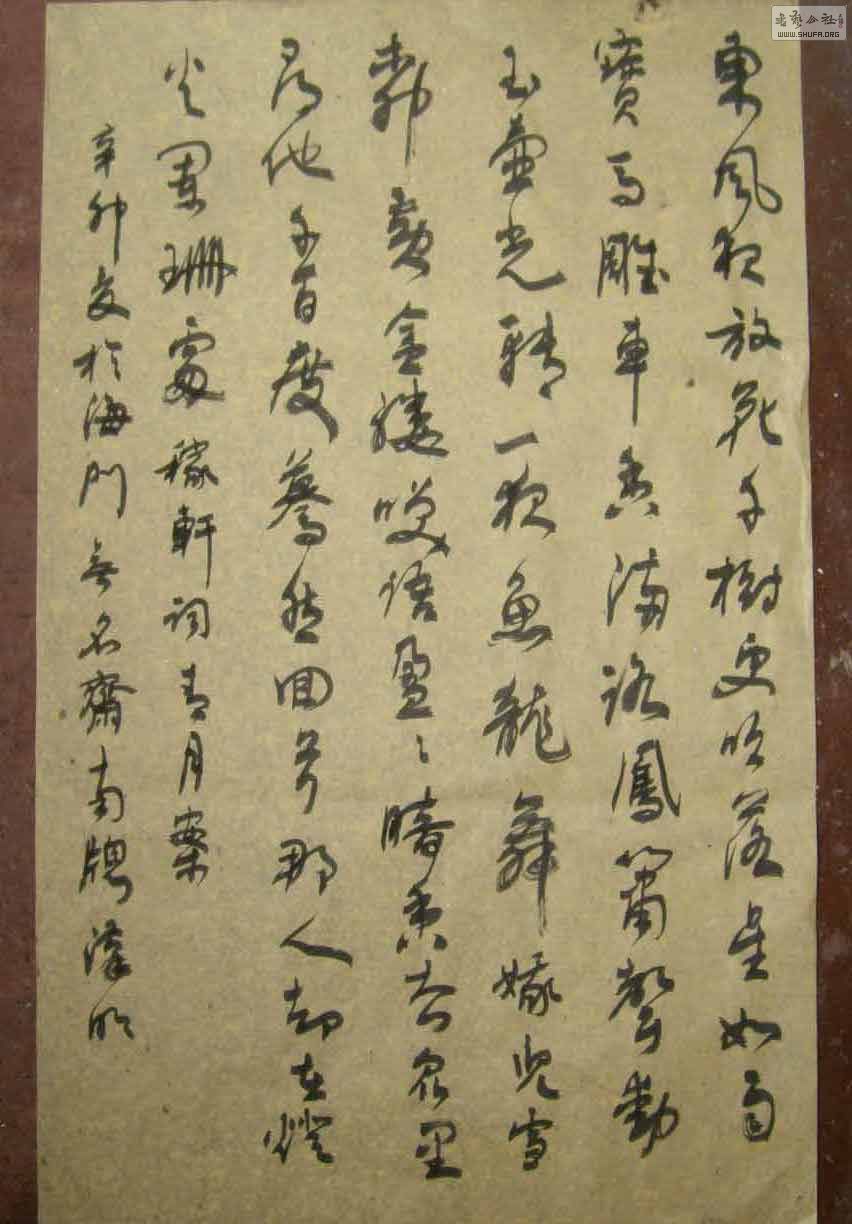 東風夜放花千樹更吹落星如雨
寶馬雕車香滿路鳳簫聲動
玉壺光轉一夜魚龍舞娥兒雪
柳黃金縷咲語盈〻暗香去眾里
尋他千百度驀然回首那人却在燈
火闌珊處稼軒詞青月案
辛卯夏於海門無名齋南牕
书艺公社
WWW.SHUFA.ORG